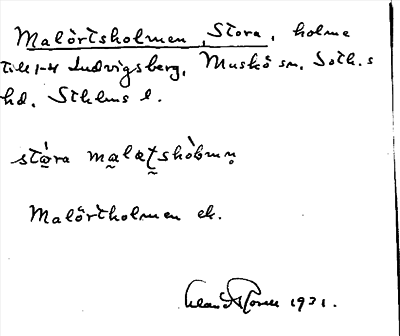 Malörtsholmen, Stora, holme
till 1-4 Ludvigsberg, Muskö sn, Soth.s
hd, Sthlms l.
stɷ́ra malæʈshòlmn̥
Malörtholmen ek.
1931.